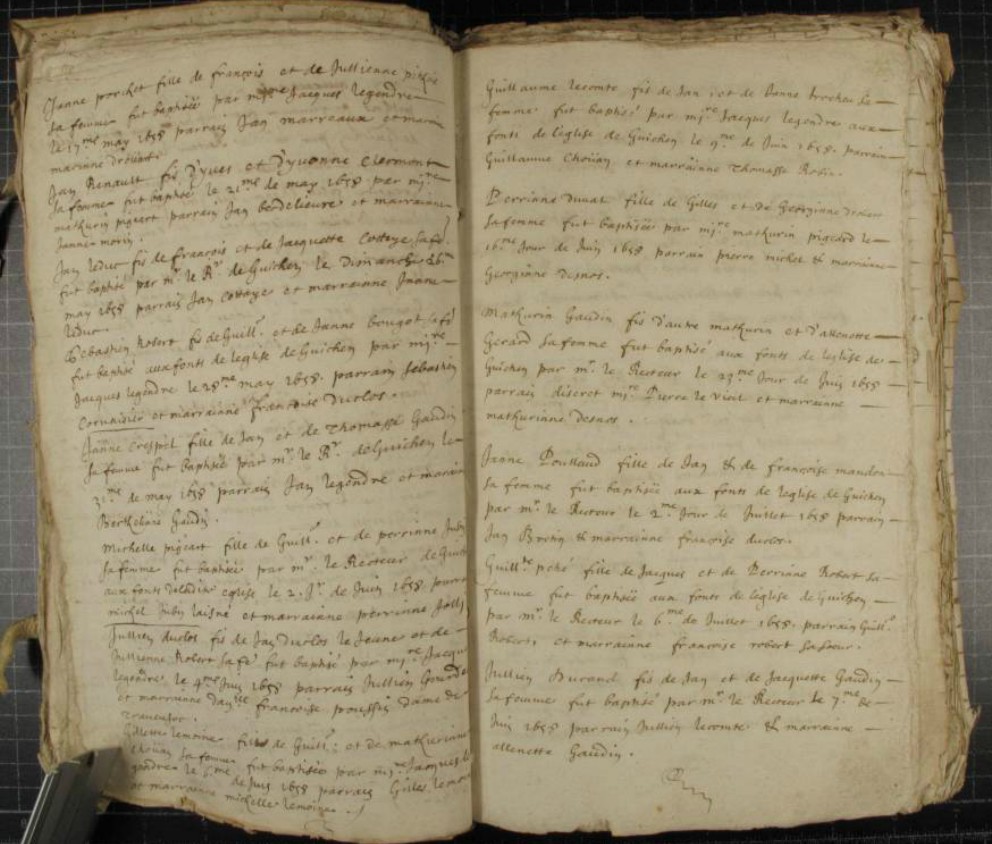 Janne porchet fille de françois et de Jullienne
sa femme fut baptisée par mire Jacques legendre
le 17me may 1658 parrain Jan marreaux et
marinne drouart
Jan Renault fis d'yves et d'yvonne Clermont
sa femme fut baptisé le 21me de may 1658 par mire
mathurin pigeart parrain Jan berdelieure et marrainne
Janne morin.
Jan leduc fis de françois et de Jacquette Cottaye sa fe
fut baptisé par mr. le Rr de Guichen le Dimanche 26me
may 1658 parrain Jan Cottaye et marrainne Janne
leduc
Sebastien Robert fis de Guill. et de Janne bougot sa fe
fut baptisé aux fonts de leglise de Guichen par mire
Jacques legendre le 28me may 1658. parrain Sebastien
Cornusier et marrainne françoise Duclos.
Janne Crespel fille de Jan et de Thomasse Gaudin
sa femme fut baptisée par mr. le Rr. de Guichen le
31me de may 1658 parrain Jan legendre et
Berthelinne Gaudin.
Michelle pigeart fille de Guill. et de perrinne
sa femme fut baptisée par mr. le Recteur de
aux fonts de ladite eglise le 2. Jr de Juin 1658
michel Aubin laisné et marrainne perrinne
Jullien duclos fis de Jan Duclos le Jeune et de
Jullienne Robert sa fe fut baptisé par mire Jacques
legendre le 4me Juin 1658 parrain Jullien
et marrainne françoise poussin dame de

Gillette lemoine fille de Guill. et de mathurinne
Choüan sa femme fut baptisée par mire Jacques
gendre le 6me de Juin 1658 parrain Gilles
et marrainne michelle lemoine.
Guillaume leconte fis de Jan et de Janne trochu sa
femme fut baptisé par mire Jacques legendre aux
fonts de leglise de Guichen le 9me de Juin 1658. parrain
Guillaume Choüan et marrainne Thomasse Robin.
Perrinne Duual fille de Gilles et de Georginne
sa femme fut baptisée par mire mathurin pigeard le
16me Jour de Juin 1658 parrain pierre michel & marrainne
Georginne Desnos.
Mathurin Gaudin fis d'autre mathurin et d'allenette
Gerard sa femme fut baptisé aux fonts de leglise de
Guichen par mr. le Recteur le 23me Jour de Juin 1658
parrain discret mire Pierre le Vieil et marrainne
mathurinne Desnos.
Janne Poullaud fille de Jan & de françoise
sa femme fut baptisée aux fonts de leglise de Guichen
par mr. le Recteur le 2me Jour de Juillet 1658 parrain
Jan Bertin & marrainne françoise duclos.
Guillte fille de Jacques et de Perrinne Robert sa
femme fut baptisée aux fonts de leglise de Guichen
par mr. le Recteur le 6me de Juillet 1658. parrain Guill.
Robert, et marrainne françoise robert sa soeur.
Jullien Durand fis de Jan et de Jacquette Gaudin
sa femme fut baptisé par mr. le Recteur le 7me de
Juin 1658 parrain Jullien leconte & marrainne
allenette Gaudin.